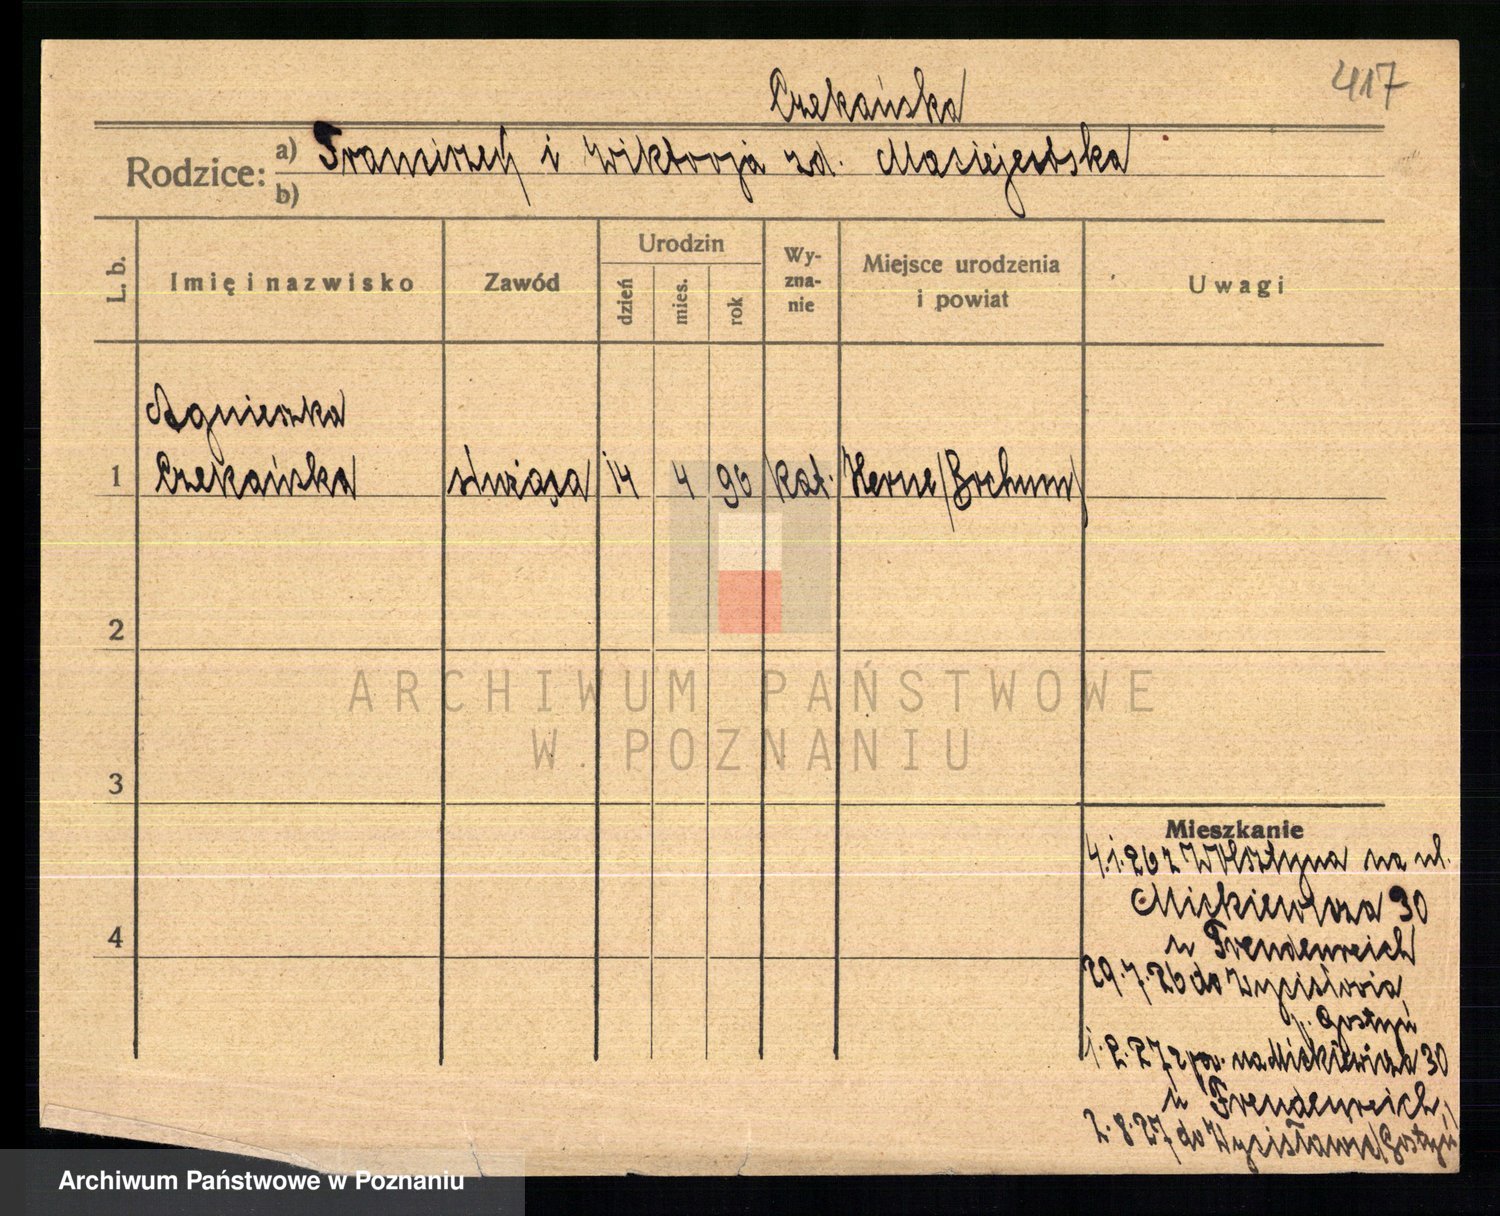 417
Czekańska
Rodzice: a) Franciszek i Wiktorja zd. Maciejewska
b)
L. b. Imię i nazwisko Zawód Urodzin dzień mies. rok Wy-zna-nie Miejsce urodzenia i powiat Uwagi
Agnieszka
1 Czekańska służąca 14 4 90 kat. Herne/Bochum/
2
ARCHIWUM PAŃSTWOWE
W POZNANIU
3
Mieszkanie
4.1.26 z Wolsztyna na ul.
Mickiewicza 30
4
u Freudenreich
29.7.26 do
p. Gostyń
1.2.27 z pow. na Mickiewicza 30
u Freudenreich,
2.8.27 do /Gostyń
Archiwum Państwowe w Poznaniu